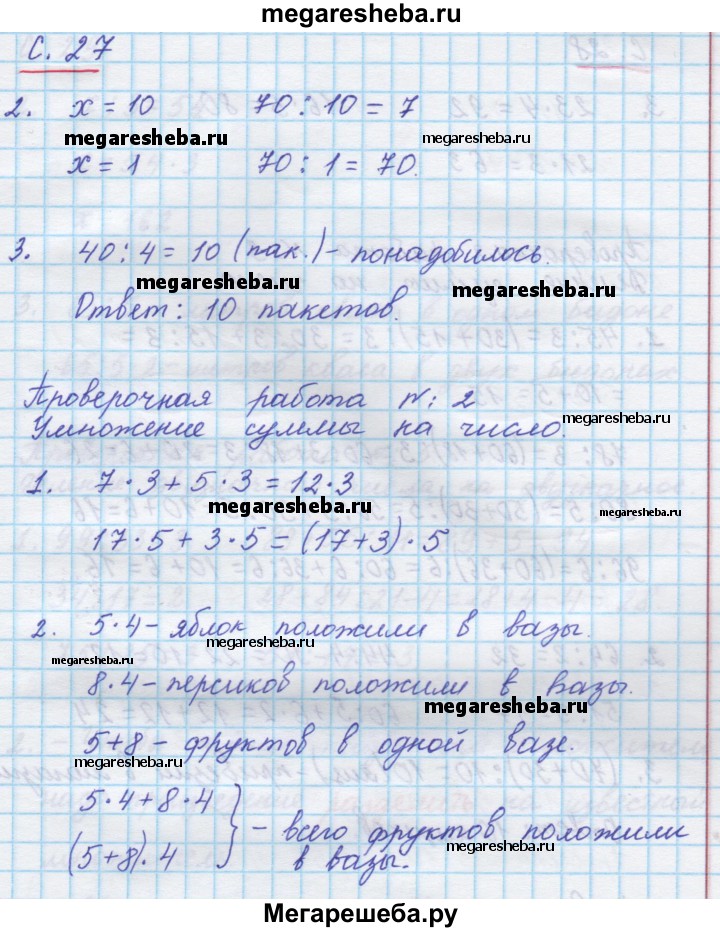 megaresheba.ru
с. 27
2. x = 10 70 : 10 = 7
megaresheba.ru megaresheba.ru
x = 1 70 : 1 = 70.
3. 40 : 4 = 10 (пак.) - понадобилось.
megaresheba.ru megaresheba.ru
Ответ: 10 пакетов.
Проверочная работа №: 2
megaresheba.ru
Умножение суммы на число.
1. 7 · 3 + 5 · 3 = 12 · 3
megaresheba.ru megaresheba.ru
17 · 5 + 3 · 5 = (17 + 3) · 5
2. 5 · 4 - яблок положили в вазы.
megaresheba.ru
megaresheba.ru
8 · 4 - персиков положили в вазы.
megaresheba.ru
5 + 8 - фруктов в одной вазе.
megaresheba.ru megaresheba.ru
5 · 4 + 8 · 4
(5 + 8) · 4 } - всего фруктов положили
megaresheba.ru
в вазы.
Мегарешеба.ру